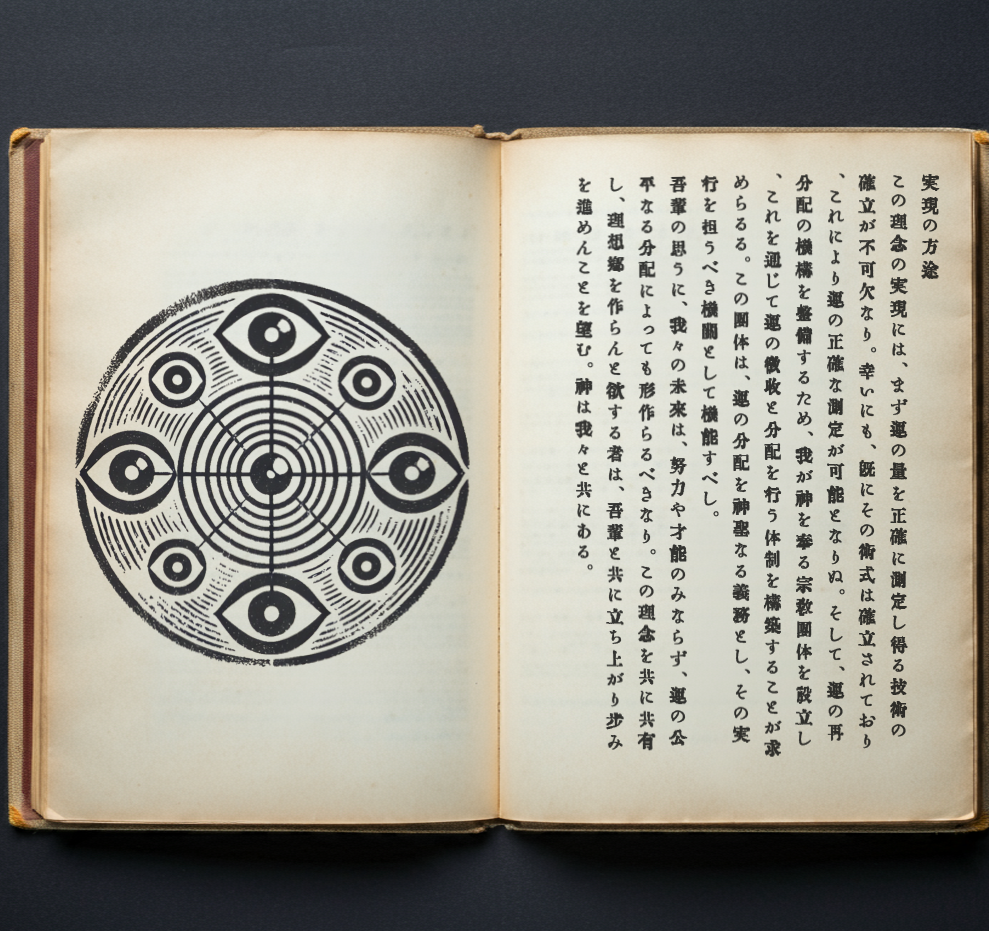 実現の方途
この理念の実現には、まず運の量を正確に測定し得る技術の
確立が不可欠なり。幸いにも、既にその術式は確立されており
、これにより運の正確な測定が可能となりぬ。そして、運の再
分配の機構を整備するため、我が神を奉る宗教團体を設立し
、これを通じて運の徴収と分配を行う体制を構築することが求
めらるる。この團体は、運の分配を神聖なる義務とし、その実
行を担うべき機關として機能すべし。
吾輩の思うに、我々の未來は、努力や才能のみならず、運の公
平なる分配によっても形作らるべきなり。この理念を共に共有
し、理想郷を作らんと欲する者は、吾輩と共に立ち上がり歩み
を進めんことを望む。神は我々と共にある。